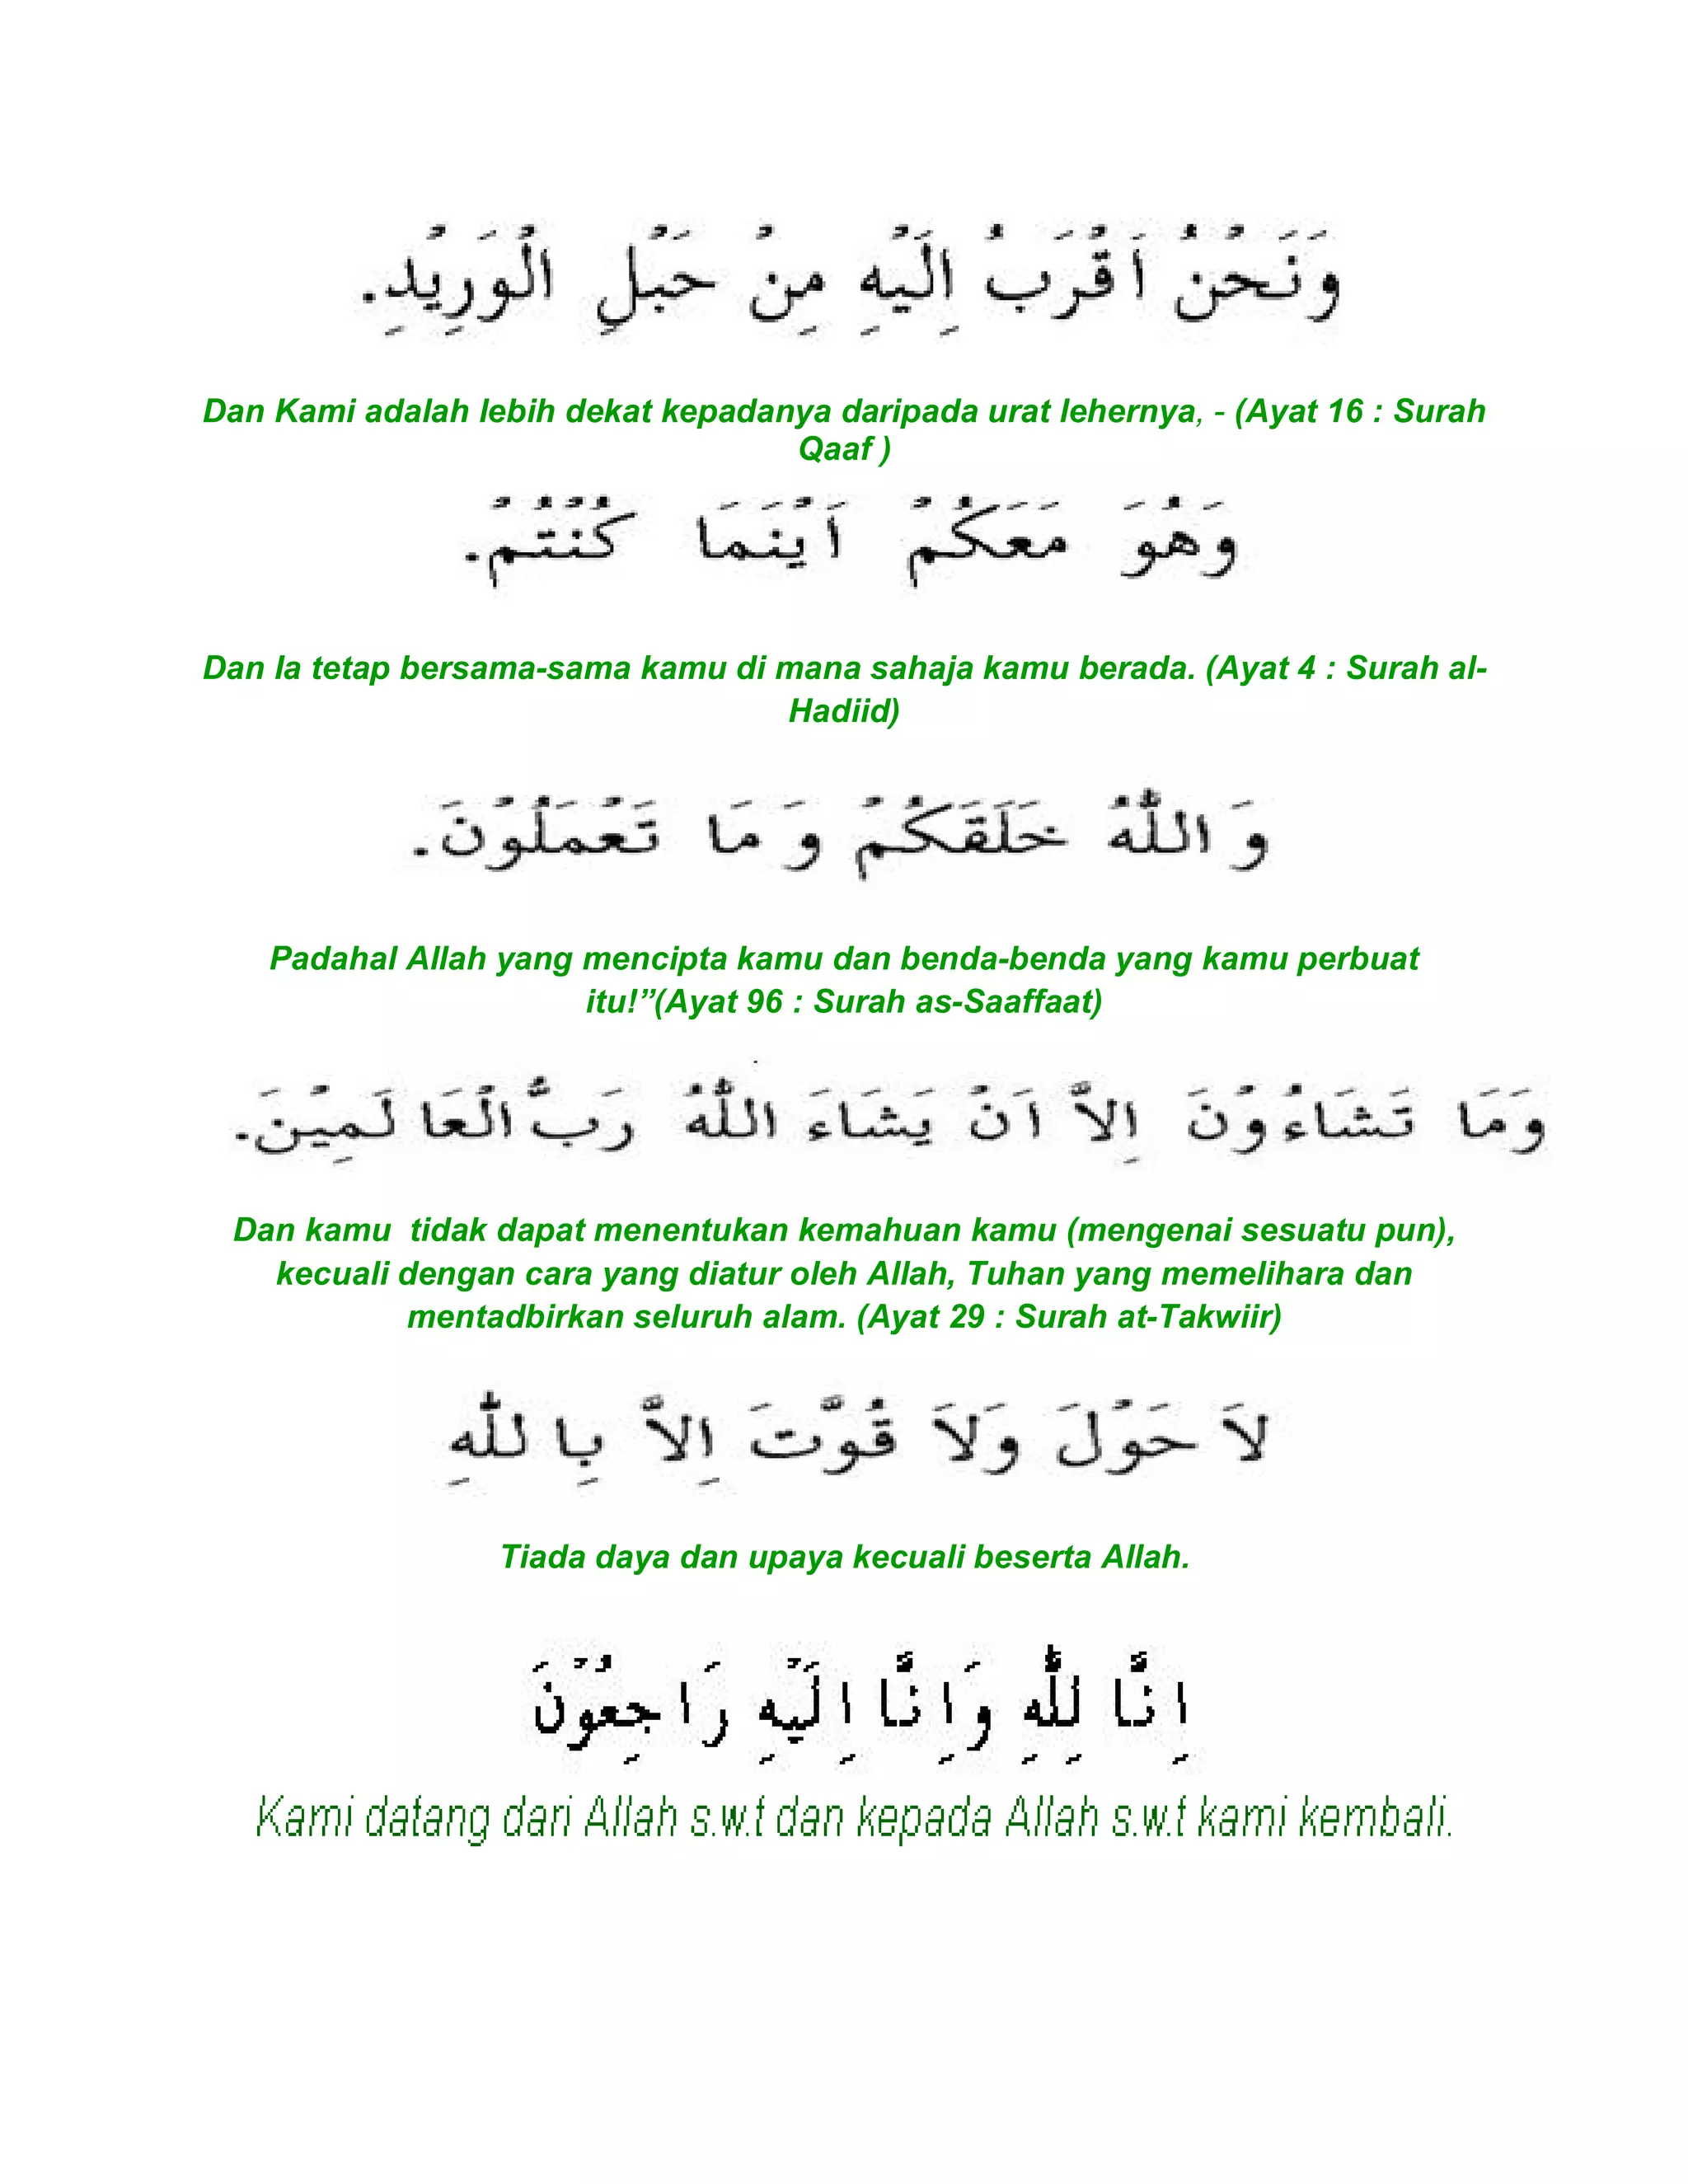 وَنَحْنُ اَقْرَبُ اِلَيْهِ مِنْ حَبْلِ الْوَرِيْدِ.
Dan Kami adalah lebih dekat kepadanya daripada urat lehernya, - (Ayat 16 : Surah
Qaaf )
وَهُوَ مَعَكُمْ اَيْنَمَا كُنْتُمْ.
Dan Ia tetap bersama-sama kamu di mana sahaja kamu berada. (Ayat 4 : Surah al-
Hadiid)
وَ اللّٰهُ خَلَقَكُمْ وَ مَا تَعْمَلُوْنَ.
Padahal Allah yang mencipta kamu dan benda-benda yang kamu perbuat
itu!”(Ayat 96 : Surah as-Saaffaat)
وَمَا تَشَاءُوْنَ اِلاَّ اَنْ يَشَاءَ اللّٰهُ رَبُّ الْعَالَمِيْنَ.
Dan kamu  tidak dapat menentukan kemahuan kamu (mengenai sesuatu pun),
kecuali dengan cara yang diatur oleh Allah, Tuhan yang memelihara dan
mentadbirkan seluruh alam. (Ayat 29 : Surah at-Takwiir)
لاَ حَوْلَ وَلاَ قُوَّتَ اِلاَّ بِاللّٰهِ
Tiada daya dan upaya kecuali beserta Allah.
اِنَّا لِلّٰهِ وَاِنَّا اِلَيْهِ رَاجِعُوْنَ
Kami datang dari Allah s.w.t dan kepada Allah s.w.t kami kembali.